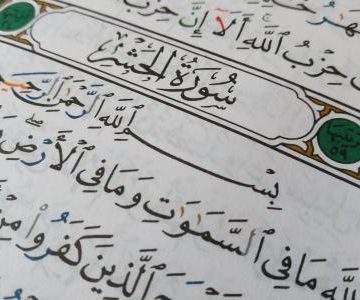 حِزْبُ ٱللَّهِ أَلَآ إِنَّ حِزْبَ
سُورَةُ الحَشْرِ
بِسْمِ ٱللَّهِ ٱلرَّحْمَٰنِ ٱلرَّحِيمِ
مَا فِى ٱلسَّمَٰوَٰتِ وَمَا فِى ٱلْأَرْضِ
ٱلَّذِينَ كَفَرُوا۟ مِنْ